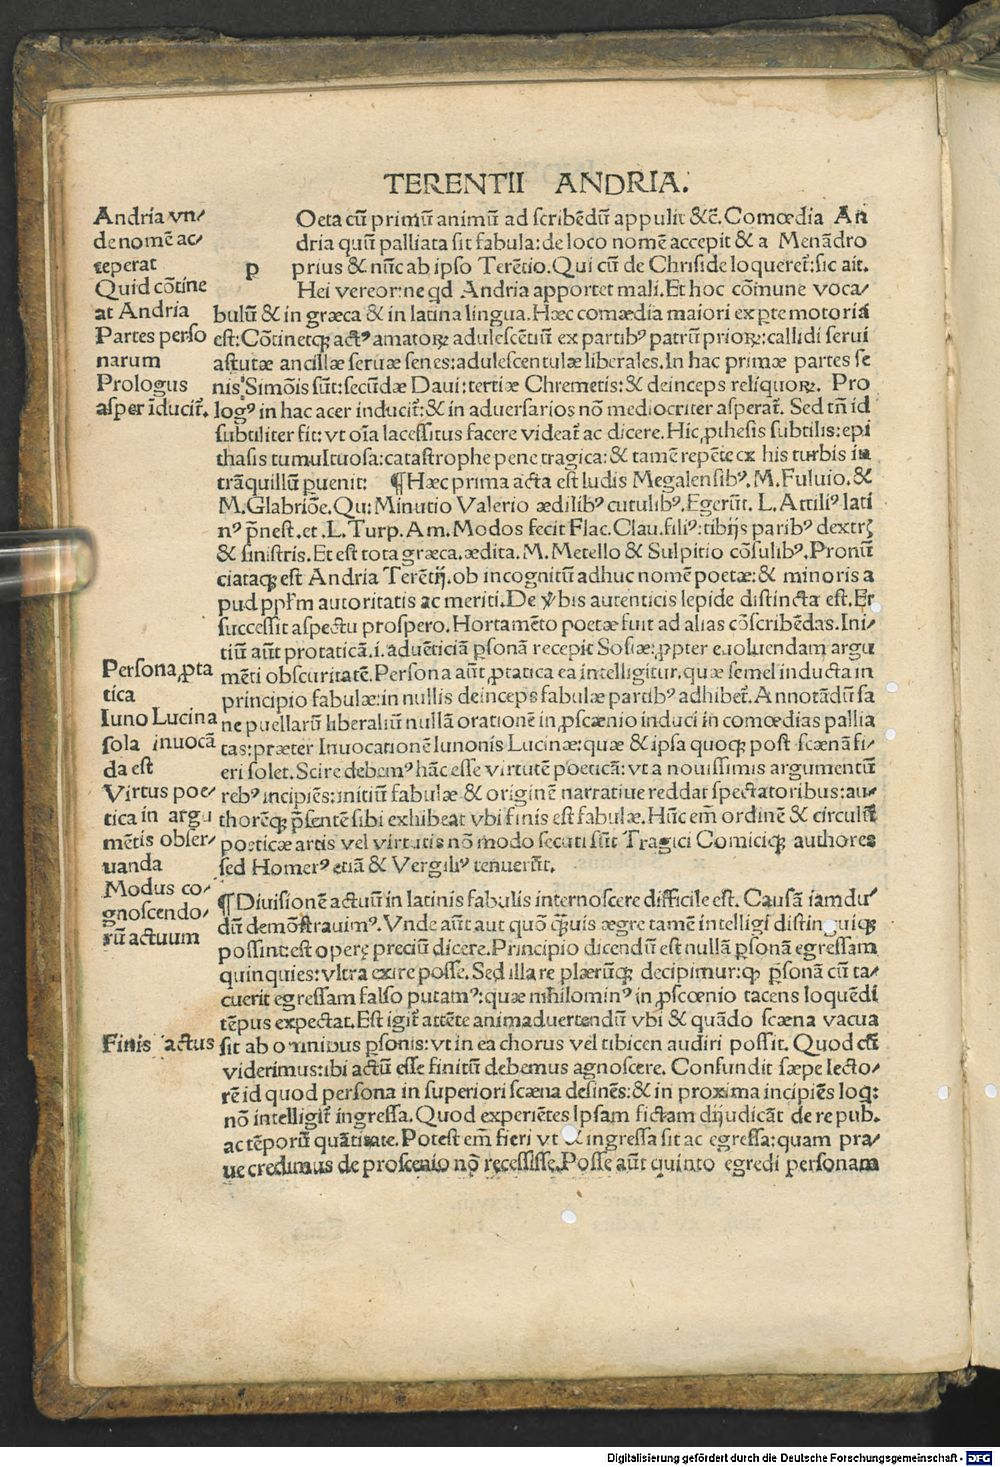 TERENTII ANDRIA.
Andria vn/
de nomē ac/
ceperat
Quid cōtine
at Andria
Partes perso
narum
Prologus
asper īducit᷑.
p
Oeta cū primū animū ad scribēdū appulit &c̄. Comœdia An
dria quū palliata sit fabula: de loco nomē accepit & a Menādro
prius & nūc ab ipso Terētio. Qui cū de Chriside loqueret᷑: sic ait.
Hei vereor: ne qd Andria apportet mali. Et hoc cōmune voca/
bulū & in græca & in latina lingua. Hæc comædia maiori ex ꝑte motoria
est: Cōtinetqꝫ actꝰ amatoꝝ adulescētiū ex partibꝰ patrū prioꝝ: callidi serui
astutæ ancillæ seruæ senes: adulescentulæ liberales. In hac primæ partes se
nis Simōis sūt: secūdæ Daui: tertiæ Chremetis: & deinceps reliquoꝝ. Pro
logꝰ in hac acer inducit᷑: & in aduersarios nō mediocriter asperat᷑. Sed tn̄ id
subtiliter fit: vt oīa lacessitus facere videat᷑ ac dicere. Hic ꝓthesis subtilis: epi
thasis tumultuosa: catastrophe pene tragica: & tamē repēte ex his turbis in
trāquillū ꝑuenit: ¶ Hæc prima acta est ludis Megalensibꝰ. M. Fuluio. &
M. Glabriōe. Qu: Minutio Valerio ædilibꝰ cutulibꝰ. Egerūt. L. Attiliꝰ lati
nꝰ p̄nest. et. L. Turp. Am. Modos fecit Flac. Clau. filiꝰ: tibijs paribꝰ dextrꝭ
& sinistris. Et est tota græca. ædita. M. Metello & Sulpitio cōsulibꝰ. Pronū
ciataqꝫ est Andria Terētij. ob incognitū adhuc nomē poetæ: & minoris a
pud pp̄l'm autoritatis ac meriti. De v̄bis autenticis lepide distincta est. Et
successit aspectu prospero. Hortamēto poetæ fuit ad alias cōscribēdas. Ini/
tiū aūt protaticā. i. aduēticiā ꝑsonā recepit Sosiæ: ꝓpter euoluendam argu
Persona ꝓta
tica
Iuno Lucina
sola inuocā
da est
Virtus poe/
tica in argu
mētis obser/
uanda
mēti obscuritatē. Persona aūt ꝓtatica ea intelligitur. quæ semel inducta in
principio fabulæ: in nullis deinceps fabulæ partibꝰ adhibet᷑. Annotādū sa
ne puellarū liberaliū nullā orationē in ꝓscænio induci in comœdias pallia
tas: præter Inuocationē Iunonis Lucinæ: quæ & ipsa quoqꝫ post scænā fi/
eri solet. Scire debemꝰ hāc esse virtutē poeticā: vt a nouissimis argumentū
rebꝰ incipiēs: initiū fabulæ & originē narratiue reddat spectatoribus: au/
thorēqꝫ p̄sentē sibi exhibeat vbi finis est fabulæ. Hūc em̄ ordinē & circulū
poeticæ artis vel virtutis nō modo secuti sūt Tragici Comiciqꝫ authores
sed Homerꝰ etiā & Vergiliꝰ tenuerūt.
Modus co/
gnoscendo/
rū actuum
¶ Diuisionē actuū in latinis fabulis internoscere difficile est. Causā iamdu/
dū demōstrauimꝰ. Vnde aūt aut quō q̄uis ægre tamē intelligi distinguiqꝫ
possint: est operę preciū dicere. Principio dicendū est nullā ꝑsonā egressam
quinquies: vltra exire posse. Sed illa re plærūqꝫ decipimur: qꝫ ꝑsonā cū ta/
cuerit egressam falso putamꝰ: quæ nihilominꝰ in ꝓscœnio tacens loquēdi
tēpus expectat. Est igit᷑ attēte animaduertendū vbi & quādo scæna vacua
Finis actus
sit ab omnibus ꝑsonis: vt in ea chorus vel tibicen audiri possit. Quod cū
viderimus: ibi actū esse finitū debemus agnoscere. Confundit sæpe lecto/
rē id quod persona in superiori scæna desinēs: & in proxima incipiēs loq:
nō intelligit᷑ ingressa. Quod experiētes Ipsam fictam dijudicāt de re pub.
ac tēporū quātitate. Potest em̄ fieri vt & ingressa sit ac egressa: quam pra/
ue credimus de proscenio nō recessisse. Posse aūt quinto egredi personam
Digitalisierung gefördert durch die Deutsche Forschungsgemeinschaft - DFG